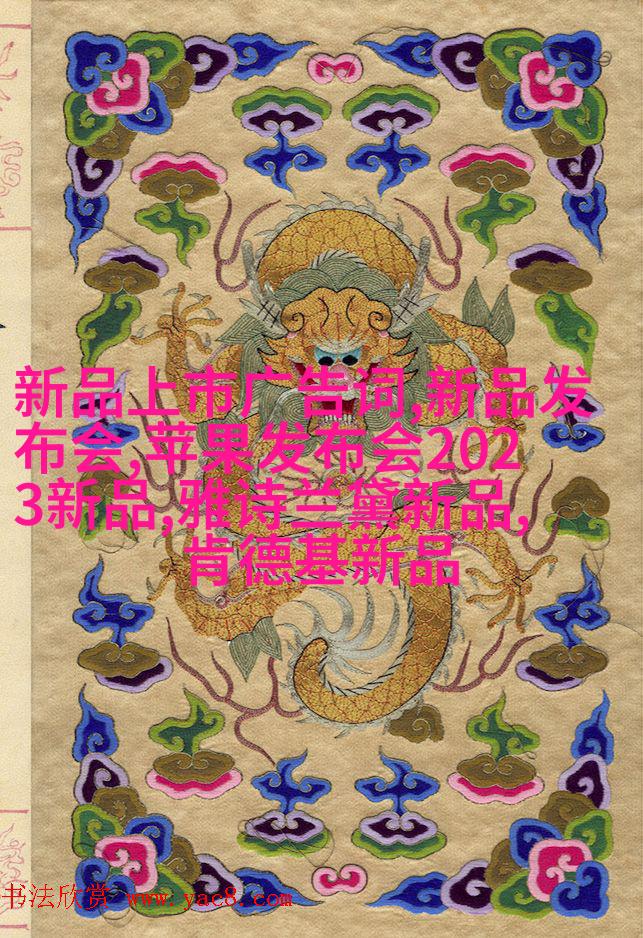 新品上市广告词,新品发
布会,苹果发布会202
3新品,雅诗兰黛新品,
肯德基新品
书法欣赏 www.yac8.com